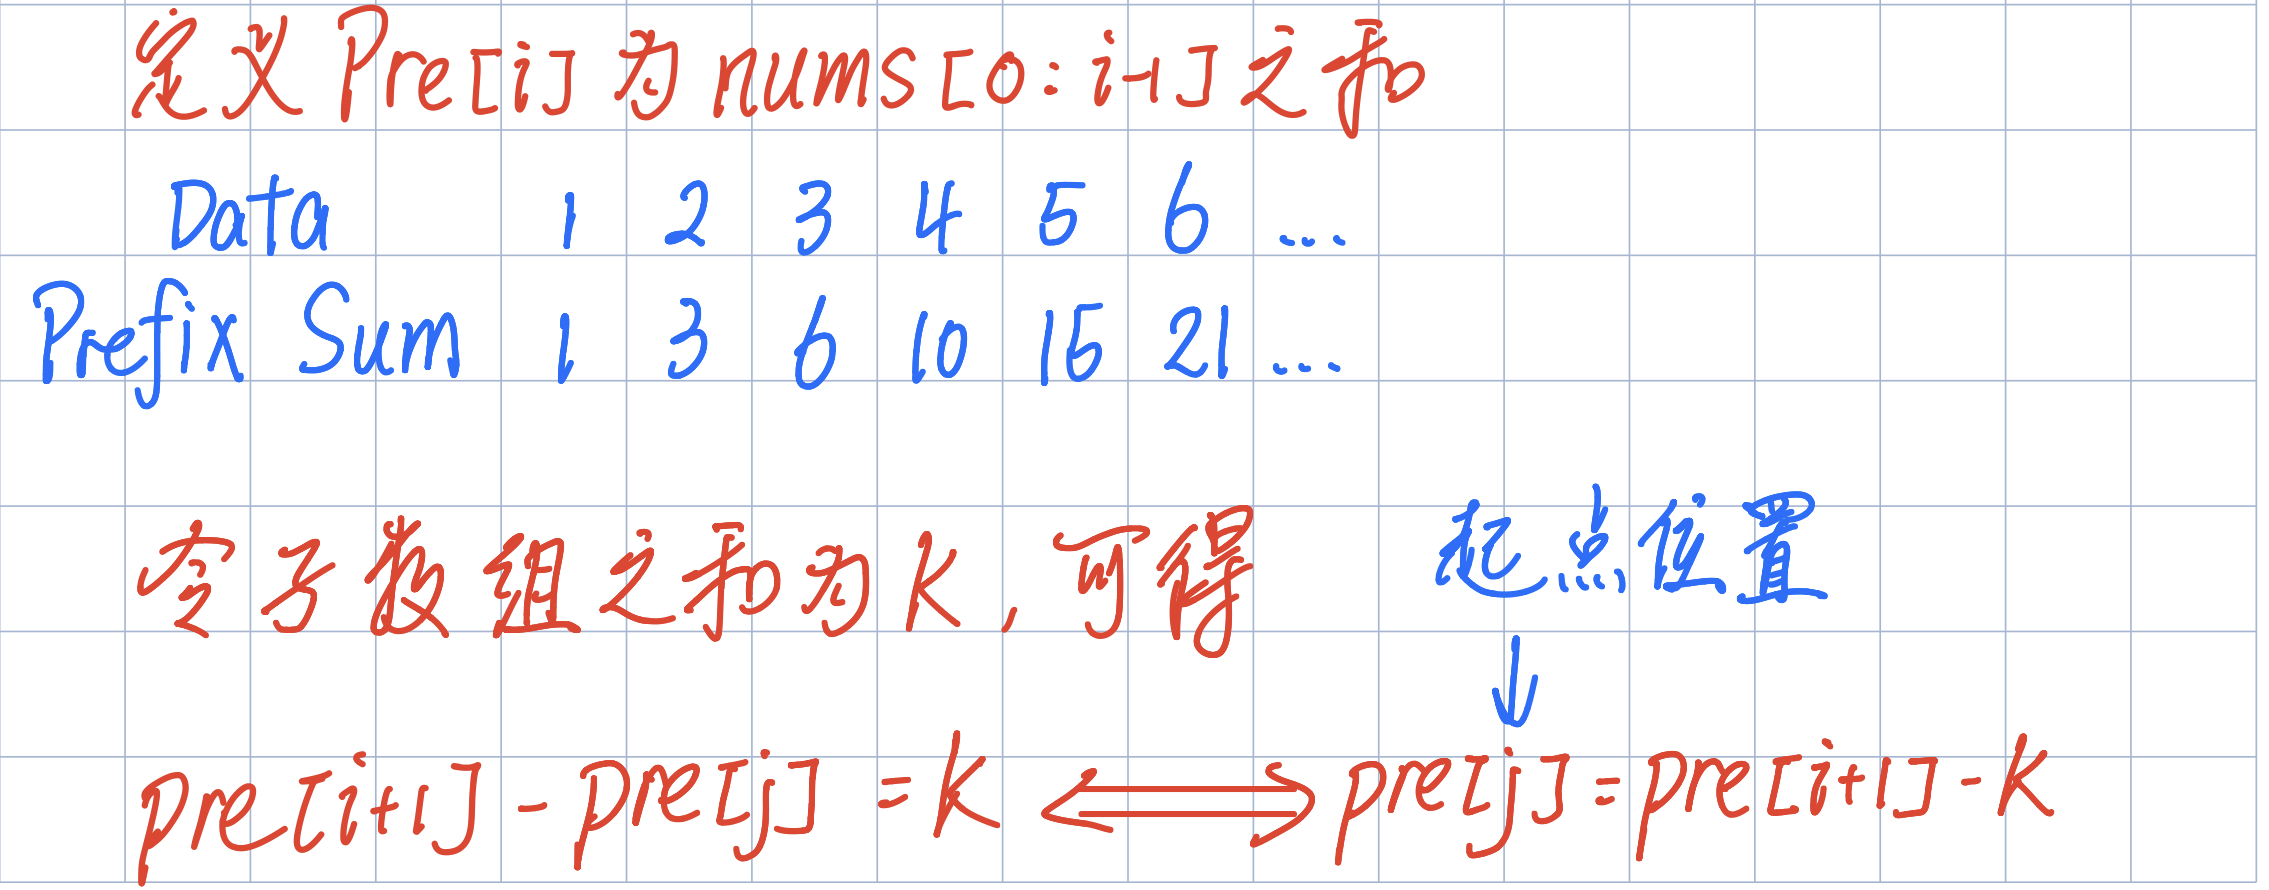 定义 Pre[i] 为 nums[0:i-1] 之和
Data 1 2 3 4 5 6 ...
Prefix Sum 1 3 6 10 15 21 ...
令子数组之和为 K, 可得
起点位置
↓
pre[i+1] - pre[j] = K ⟺ pre[j] = pre[i+1] - K